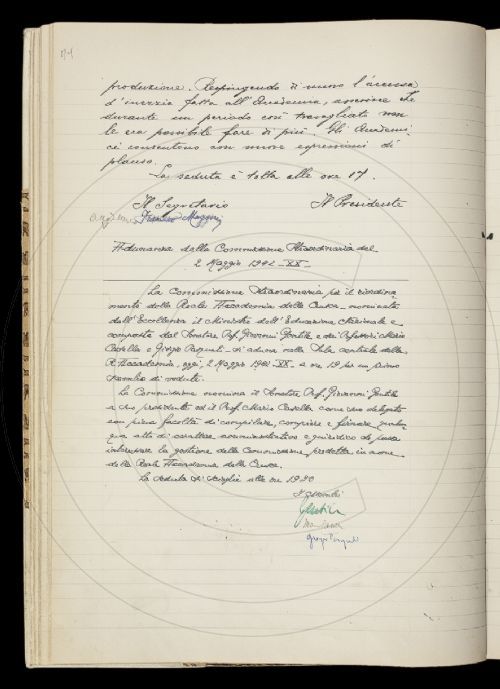 produzione. Respingendo di nuovo l'accusa
d'inerzia fatta all'Accademia, osserva che
durante un periodo così travagliato non
le era possibile fare di più. Gli Accademi-
ci consentono con nuove espressioni di
plauso.
La seduta è tolta alle ore 17.
Il Segretario
Il Presidente
Adunanza della Commissione Straordinaria del
2 Maggio 1942 - XX -
La Commissione Straordinaria per il riordina-
mento della Reale Accademia della Crusca nominata
dall'Eccellenza il Ministro dell'Educazione Nazionale e
composta dal Senatore Prof. Giovanni Gentile e dai Professori Mario
Casella e Giorgio Pasquali si aduna nella Sala centrale della
R. Accademia, oggi, 2 Maggio 1942 - XX - a ore 19 per un primo
scambio di vedute.
La Commissione nomina il Senatore Prof. Giovanni Gentile
a suo presidente ed il Prof. Mario Casella come suo delegato
con piena facoltà di compilare, compiere e firmare qualun-
que atto di carattere amministrativo e giuridico che possa
interessare la gestione della Commissione predetta in nome
della Reale Accademia della Crusca.
La seduta si scioglie alle ore 19.30
Gentile
Giorgio Pasquali